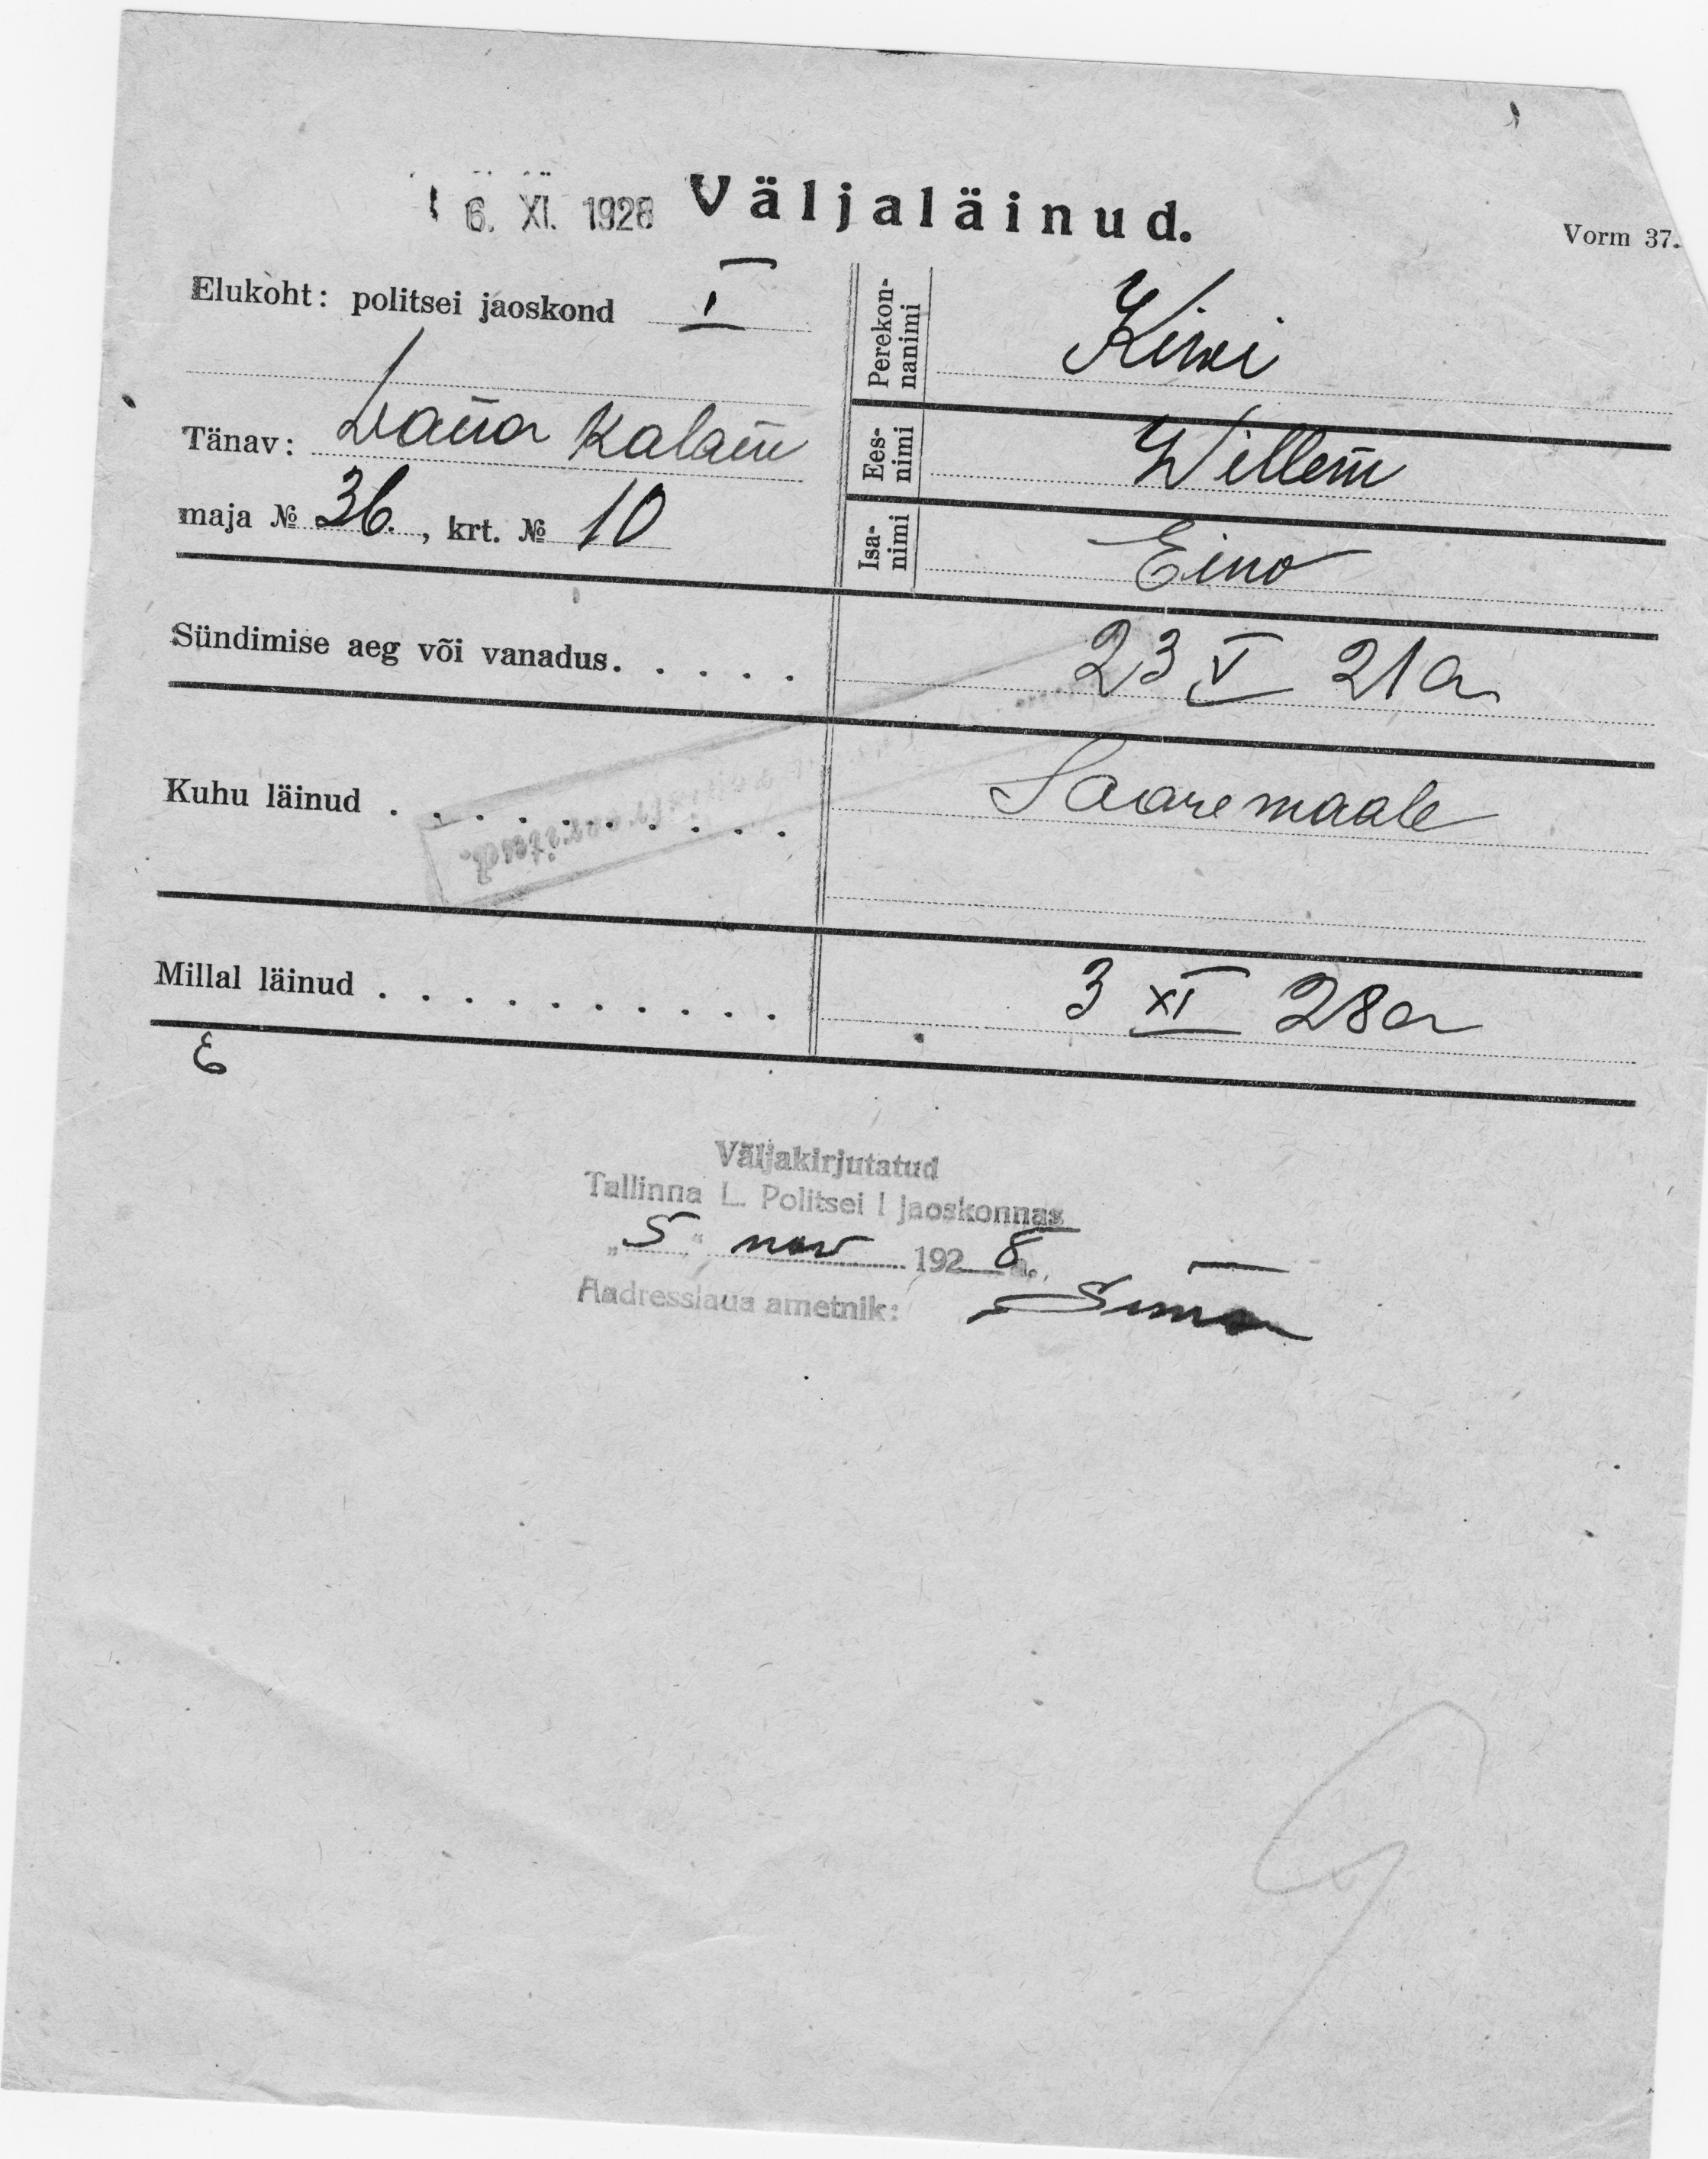 6. XI. 1928 Väljaläinud.
Vorm 37.
Elukoht: politsei jaoskond I
Tänav: Vana Kalam
maja № 36., krt. № 10
Perekon-
nanimi Kiwi
Ees-
nimi Willem
Isa-
nimi Eino
Sündimise aeg või vanadus. . . . . 23 V 21 a
Kuhu läinud . . . . . . . . . . Saaremaale
Millal läinud . . . . . . . . . . 3 XI 28 a
Väljakirjutatud
Tallinna L. Politsei I jaoskonnas
„5" nov 1928 a.
Aadresslaua ametnik: